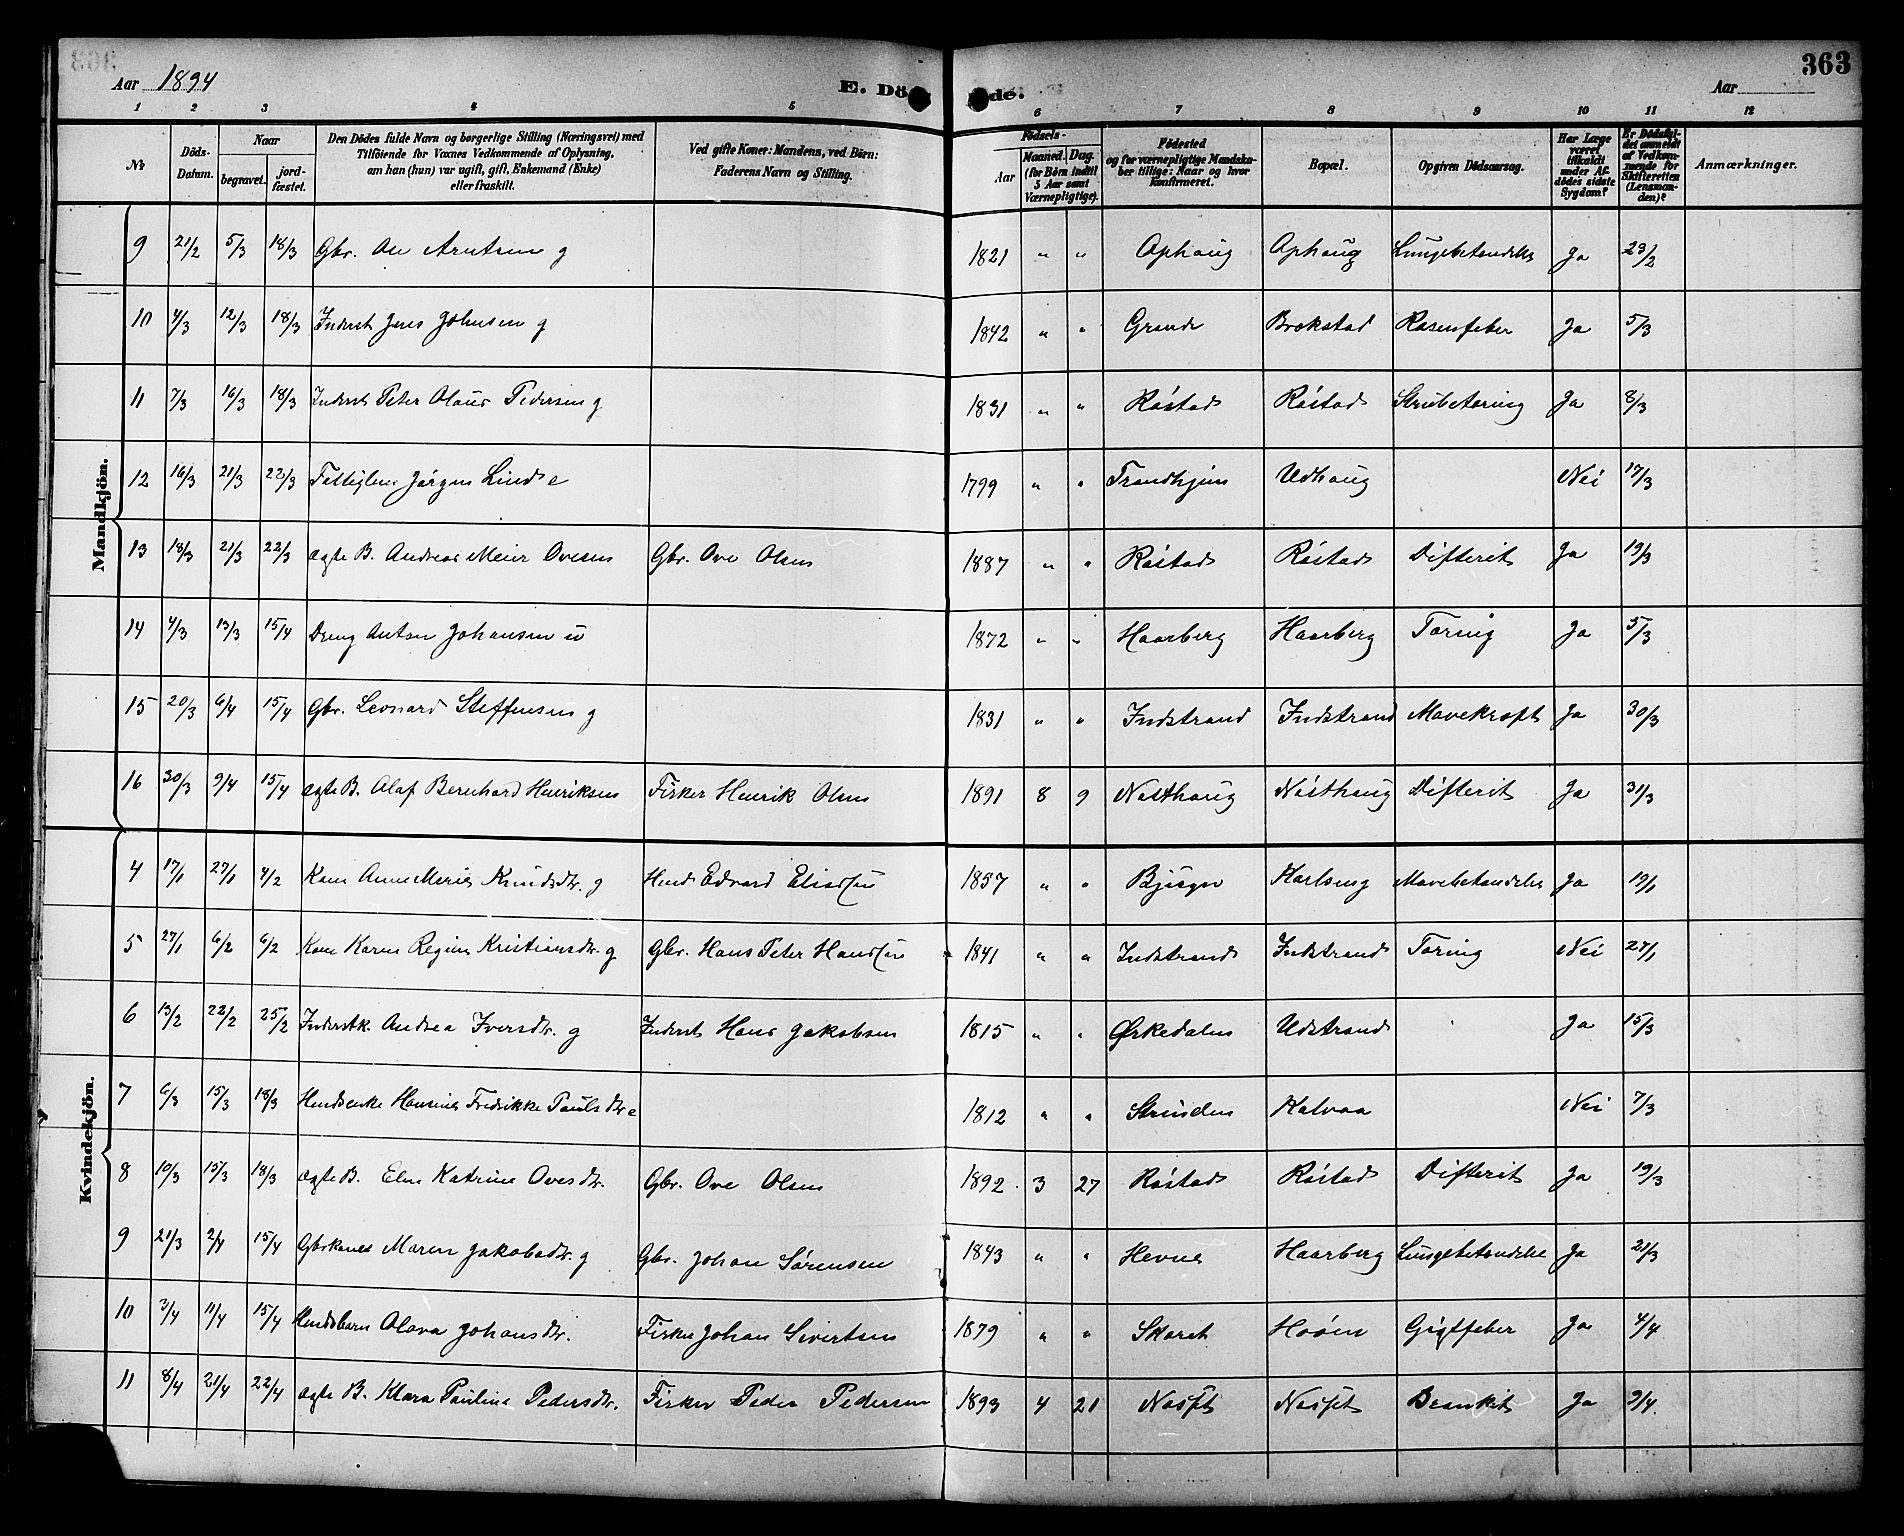 363
Aar 1894 E. Döde. Aar
1 2 3 4 5 6 7 8 9 10 11 12
No
Döds-Datum.
Naar
begravet.
jordfæstet.
Den Dödes fulde Navn og borgerlige Stilling (Næringsvei) med
Tilföiende for Voxnes Vedkommende af Oplysning,
om han (hun) var ugift, gift, Enkemand (Enke)
eller fraskilt.
Ved gifte Koner: Mandens, ved Börn:
Faderens Navn og Stilling.
Födsels-
Aar
Maaned. Dag.
(for Börn indtil
5 Aar samt
Værnepligtige).
Födested
og for værnepligtige Mandska-
ber tillige: Naar og hvor
konfirmeret.
Bopæl.
Opgiven Dödsaarsag.
Har Læge
været
tilkaldt
under Af-
dödes sidste
Sygdom?
Er Dödsfal-
det anmeldt
af Vedkom-
mende for
Skifteretten
(Lensman-
den)?
Anmærkninger.
Mandkjön.
9 21/2 5/3 18/3 Gbr. Ole Arntsen g 1821 " " Ophaug Ophaug Lungebetændelse Ja 23/2
10 4/3 12/3 18/3 Inderst Jens Johnsen g 1842 " " Grande Brekstad Rosenfeber Ja 5/3
11 7/3 16/3 18/3 Inderst Peter Olaus Pedersen g 1831 " " Røstad Røstad Strubetæring Ja 8/3
12 16/3 21/3 22/3 Fattiglem Jørgen Lind e 1799 " " Trondhjem Udhaug Nei 17/3
13 18/3 21/3 22/3 ægte B. Andreas Meier Ovesen Gbr. Ove Olsen 1887 " " Røstad Røstad Difterit Ja 19/3
14 4/3 13/3 15/4 Dreng Anton Johansen u 1872 " " Haarberg Haarberg Tæring Ja 5/3
15 20/3 6/4 15/4 Gbr. Leonard Steffensen g 1831 " " Indstrand Indstrand Mavekræft Ja 30/3
16 30/3 9/4 15/4 ægte B. Olaf Bernhard Henriksen Fisker Henrik Olsen 1891 8 9 Næsthaug Næsthaug Difterit Ja 31/3
Kvindekjön.
4 17/1 27/1 4/2 Kone Anne Marie Knudsdtr. g Husm Edvard Eliassen 1857 " " Bjugn Karlseng Mavebetændelse Ja 19/1
5 27/1 6/2 6/2 Kone Karen Regine Kristiansdtr. g Gbr. Hans Peter Hanssen 1841 " " Indstrand Indstrand Tæring Nei 27/1
6 13/2 22/2 25/2 Inderstk. Andrea Iversdtr. g Inderst Hans Jakobsen 1815 " " Ørkedalen Udstrand Ja 15/3
7 6/3 15/3 18/3 Husmenke Hansine Fredrikke Paulsdtr e 1812 " " Strinden Kalvaa Nei 7/3
8 10/3 15/3 18/3 ægte B. Elen Katrine Ovesdtr. Gbr. Ove Olsen 1892 3 27 Røstad Røstad Difterit Ja 19/3
9 21/3 2/4 15/4 Gbrkone Maren Jakobsdtr. g Gbr. Johan Sørensen 1843 " " Hevne Haarberg Lungebetændelse Ja 21/3
10 3/4 11/4 15/4 Husmbarn Olava Johansdtr. Fisker Johan Sivertsen 1879 " " Skaret Hoøen Gigtfeber Ja 4/4
11 8/4 21/4 22/4 ægte B. Klara Pauline Pedersdtr. Fisker Peder Pedersen 1893 4 21 Næsset Næsset Bronkit Ja 9/4